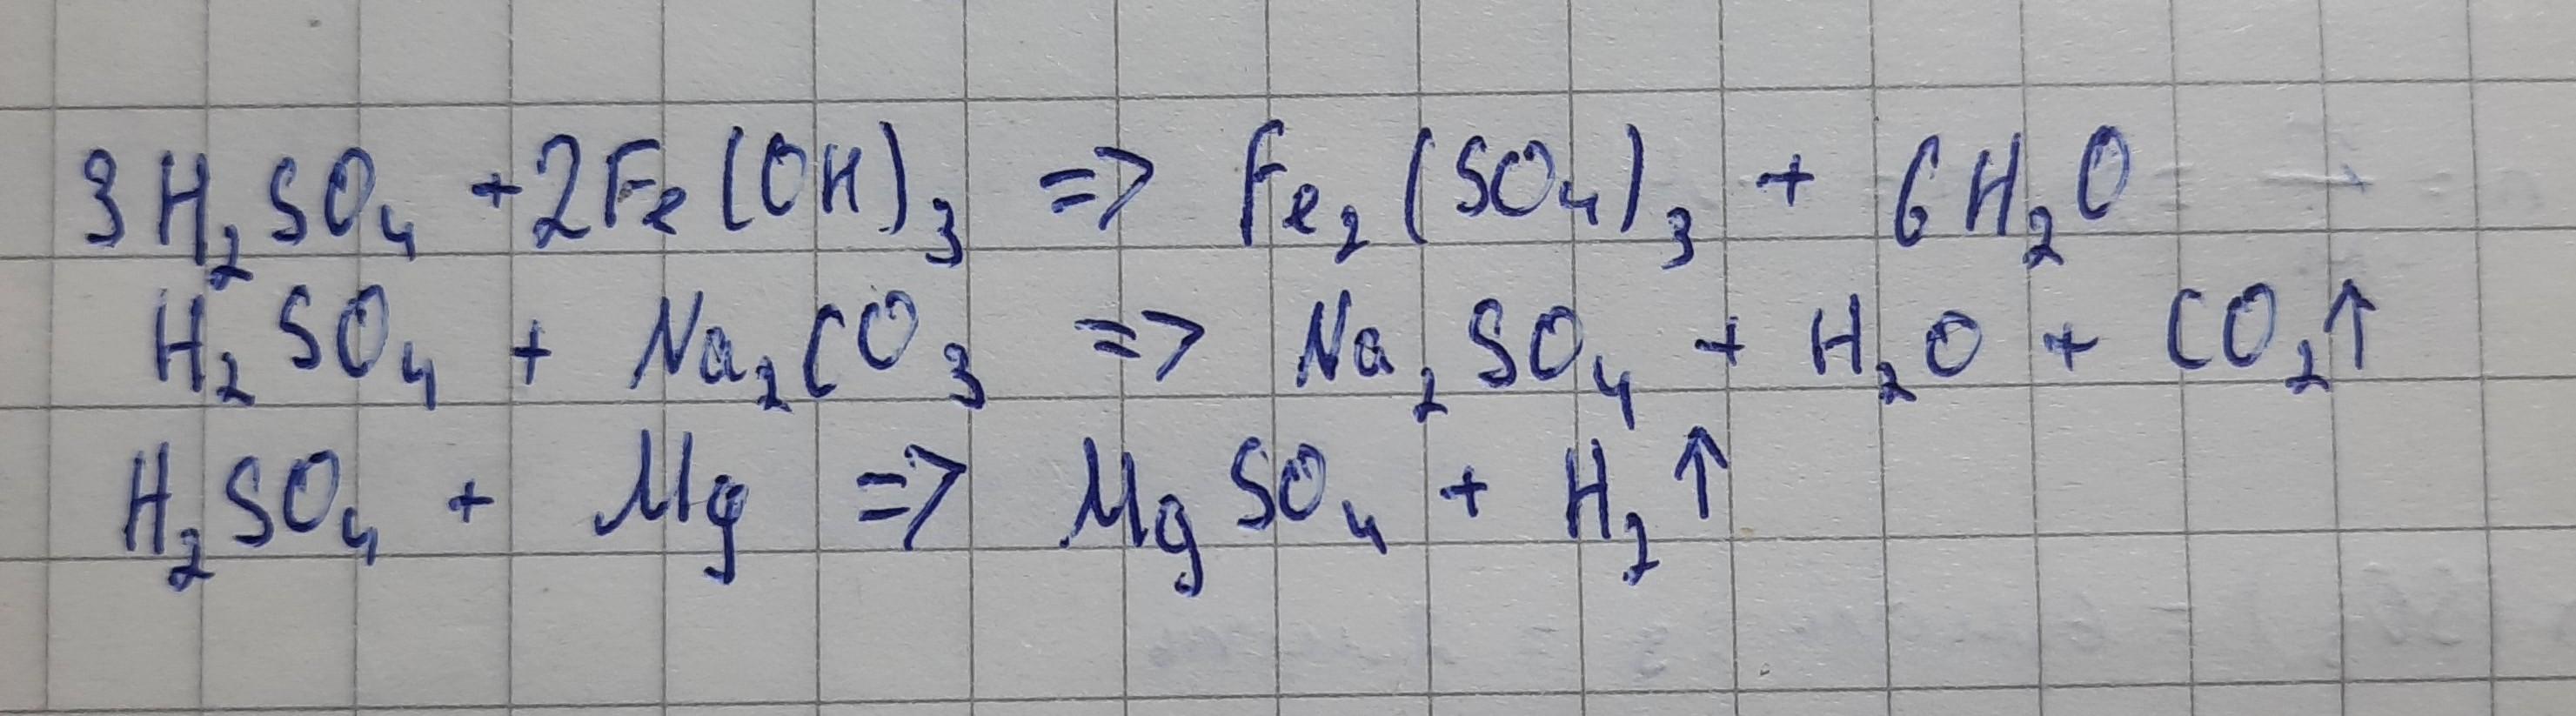 3H₂SO₄ + 2Fe(OH)₃ => Fe₂(SO₄)₃ + 6H₂O
H₂SO₄ + Na₂CO₃ => Na₂SO₄ + H₂O + CO₂↑
H₂SO₄ + Mg => MgSO₄ + H₂↑